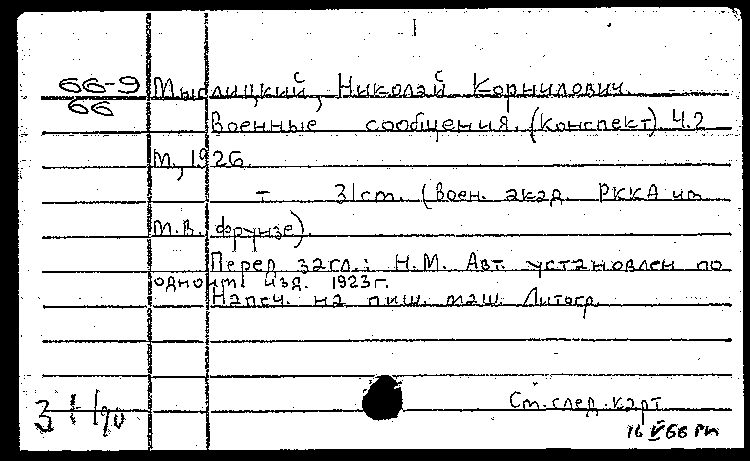 66-9 Мыслицкий, Николай Корнилович.
66
Военные сообщения. (Конспект) Ч.2
М., 1926.
31 ст. (Воен. акад. РККА им.
М.В. Фрунзе).
Перед загл.: Н.М. Авт. установлен по
одноим. изд. 1923 г.
Напеч. на пиш. маш. Литогр.
Ст. след. карт.
16 V 66 Рт